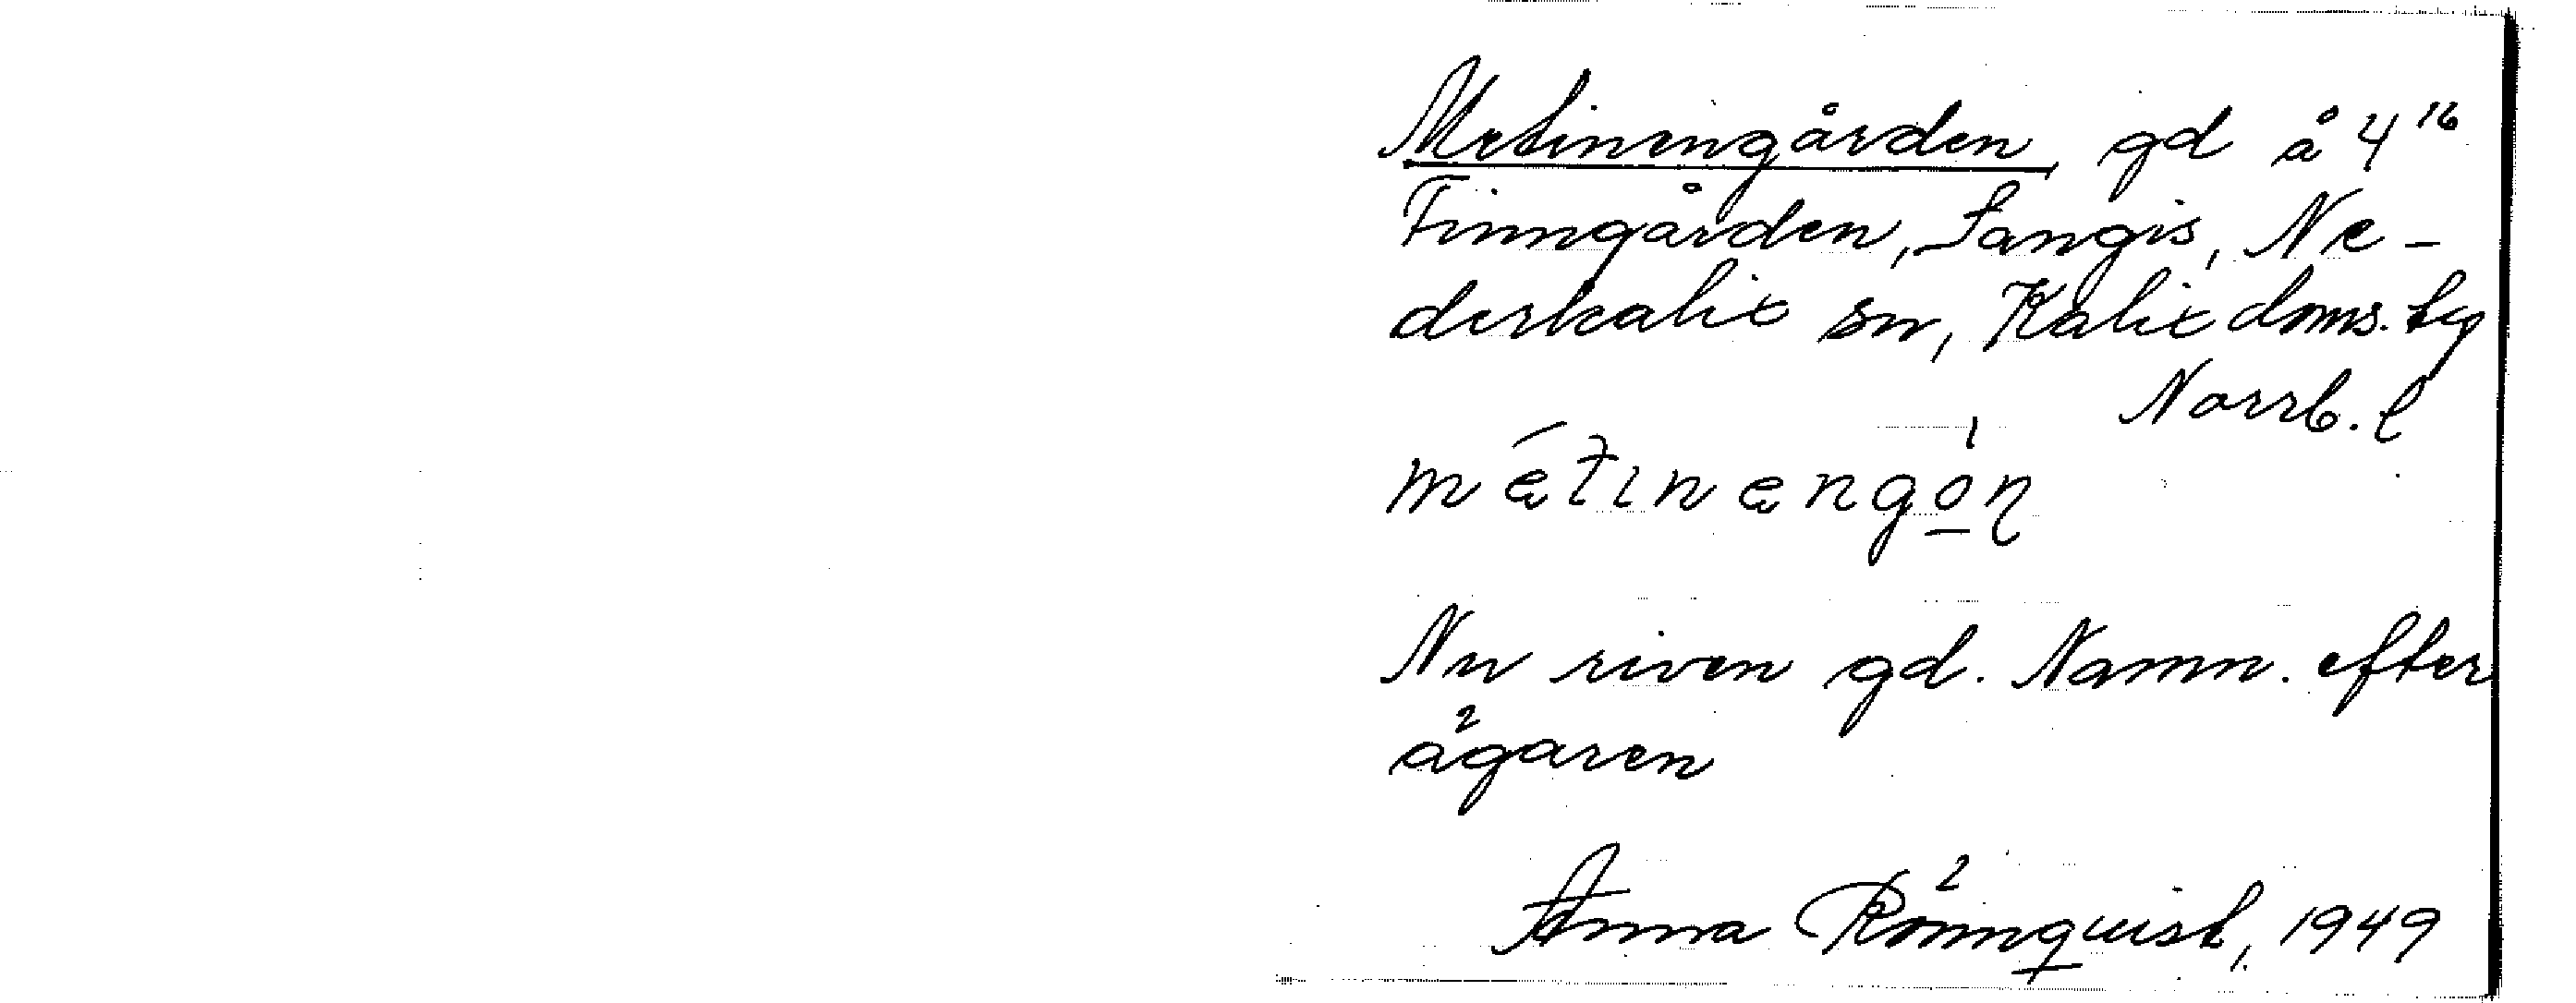 Metinengården, gd å 4¹⁶
Finngården, Sangis, Ne-
derkalix sn, Kalix doms. tg
Norrb. l
métinengón
Nu riven gd. Namn. efter
ägaren
Anna Rönnquist, 1949